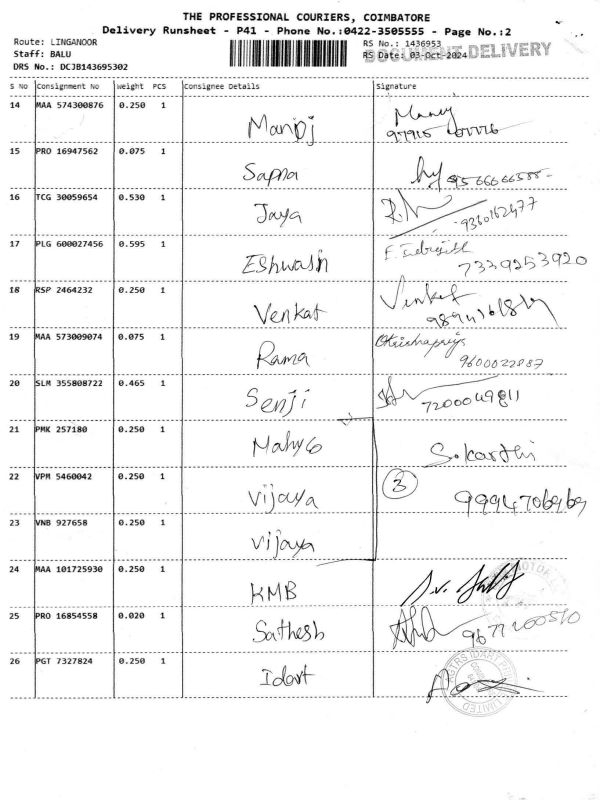 THE PROFESSIONAL COURIERS, COIMBATORE
Delivery Runsheet - P41 - Phone No.:0422-3505555 - Page No.:2
Route: LINGANOOR
RS No.: 1436953
Staff: BALU
RS Date: 03-Oct-2024
DOCUMENT DELIVERY
DRS No.: DCJB143695302
S No Consignment No Weight PCS Consignee Details Signature
14 MAA 574300876 0.250 1 Manoj
15 PRO 16947562 0.075 1 Sapna
16 TCG 30059654 0.530 1 Jaya 9360162477
17 PLG 600027456 0.595 1 Eshwash 7339253920
18 RSP 2464232 0.250 1 Venkat Venkat
19 MAA 573009074 0.075 1 Rama 9600022887
20 SLM 355808722 0.465 1 Senji 7200049811
21 PMK 257180 0.250 1 S.karthi
22 VPM 5460042 0.250 1 Vijaya 3 9994706969
23 VNB 927658 0.250 1 Vijaya
24 MAA 101725930 0.250 1 KMB
25 PRO 16854558 0.020 1 Sathesh 9677200510
26 PGT 7327824 0.250 1 Idart